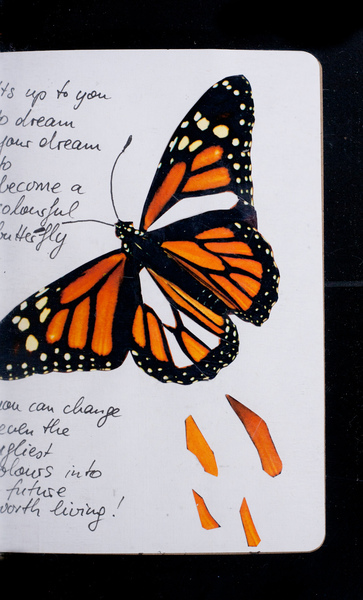 It's up to you
to dream
your dream
to
become a
colourful
butterfly
you can change
even the
ugliest
colours into
future
worth living!